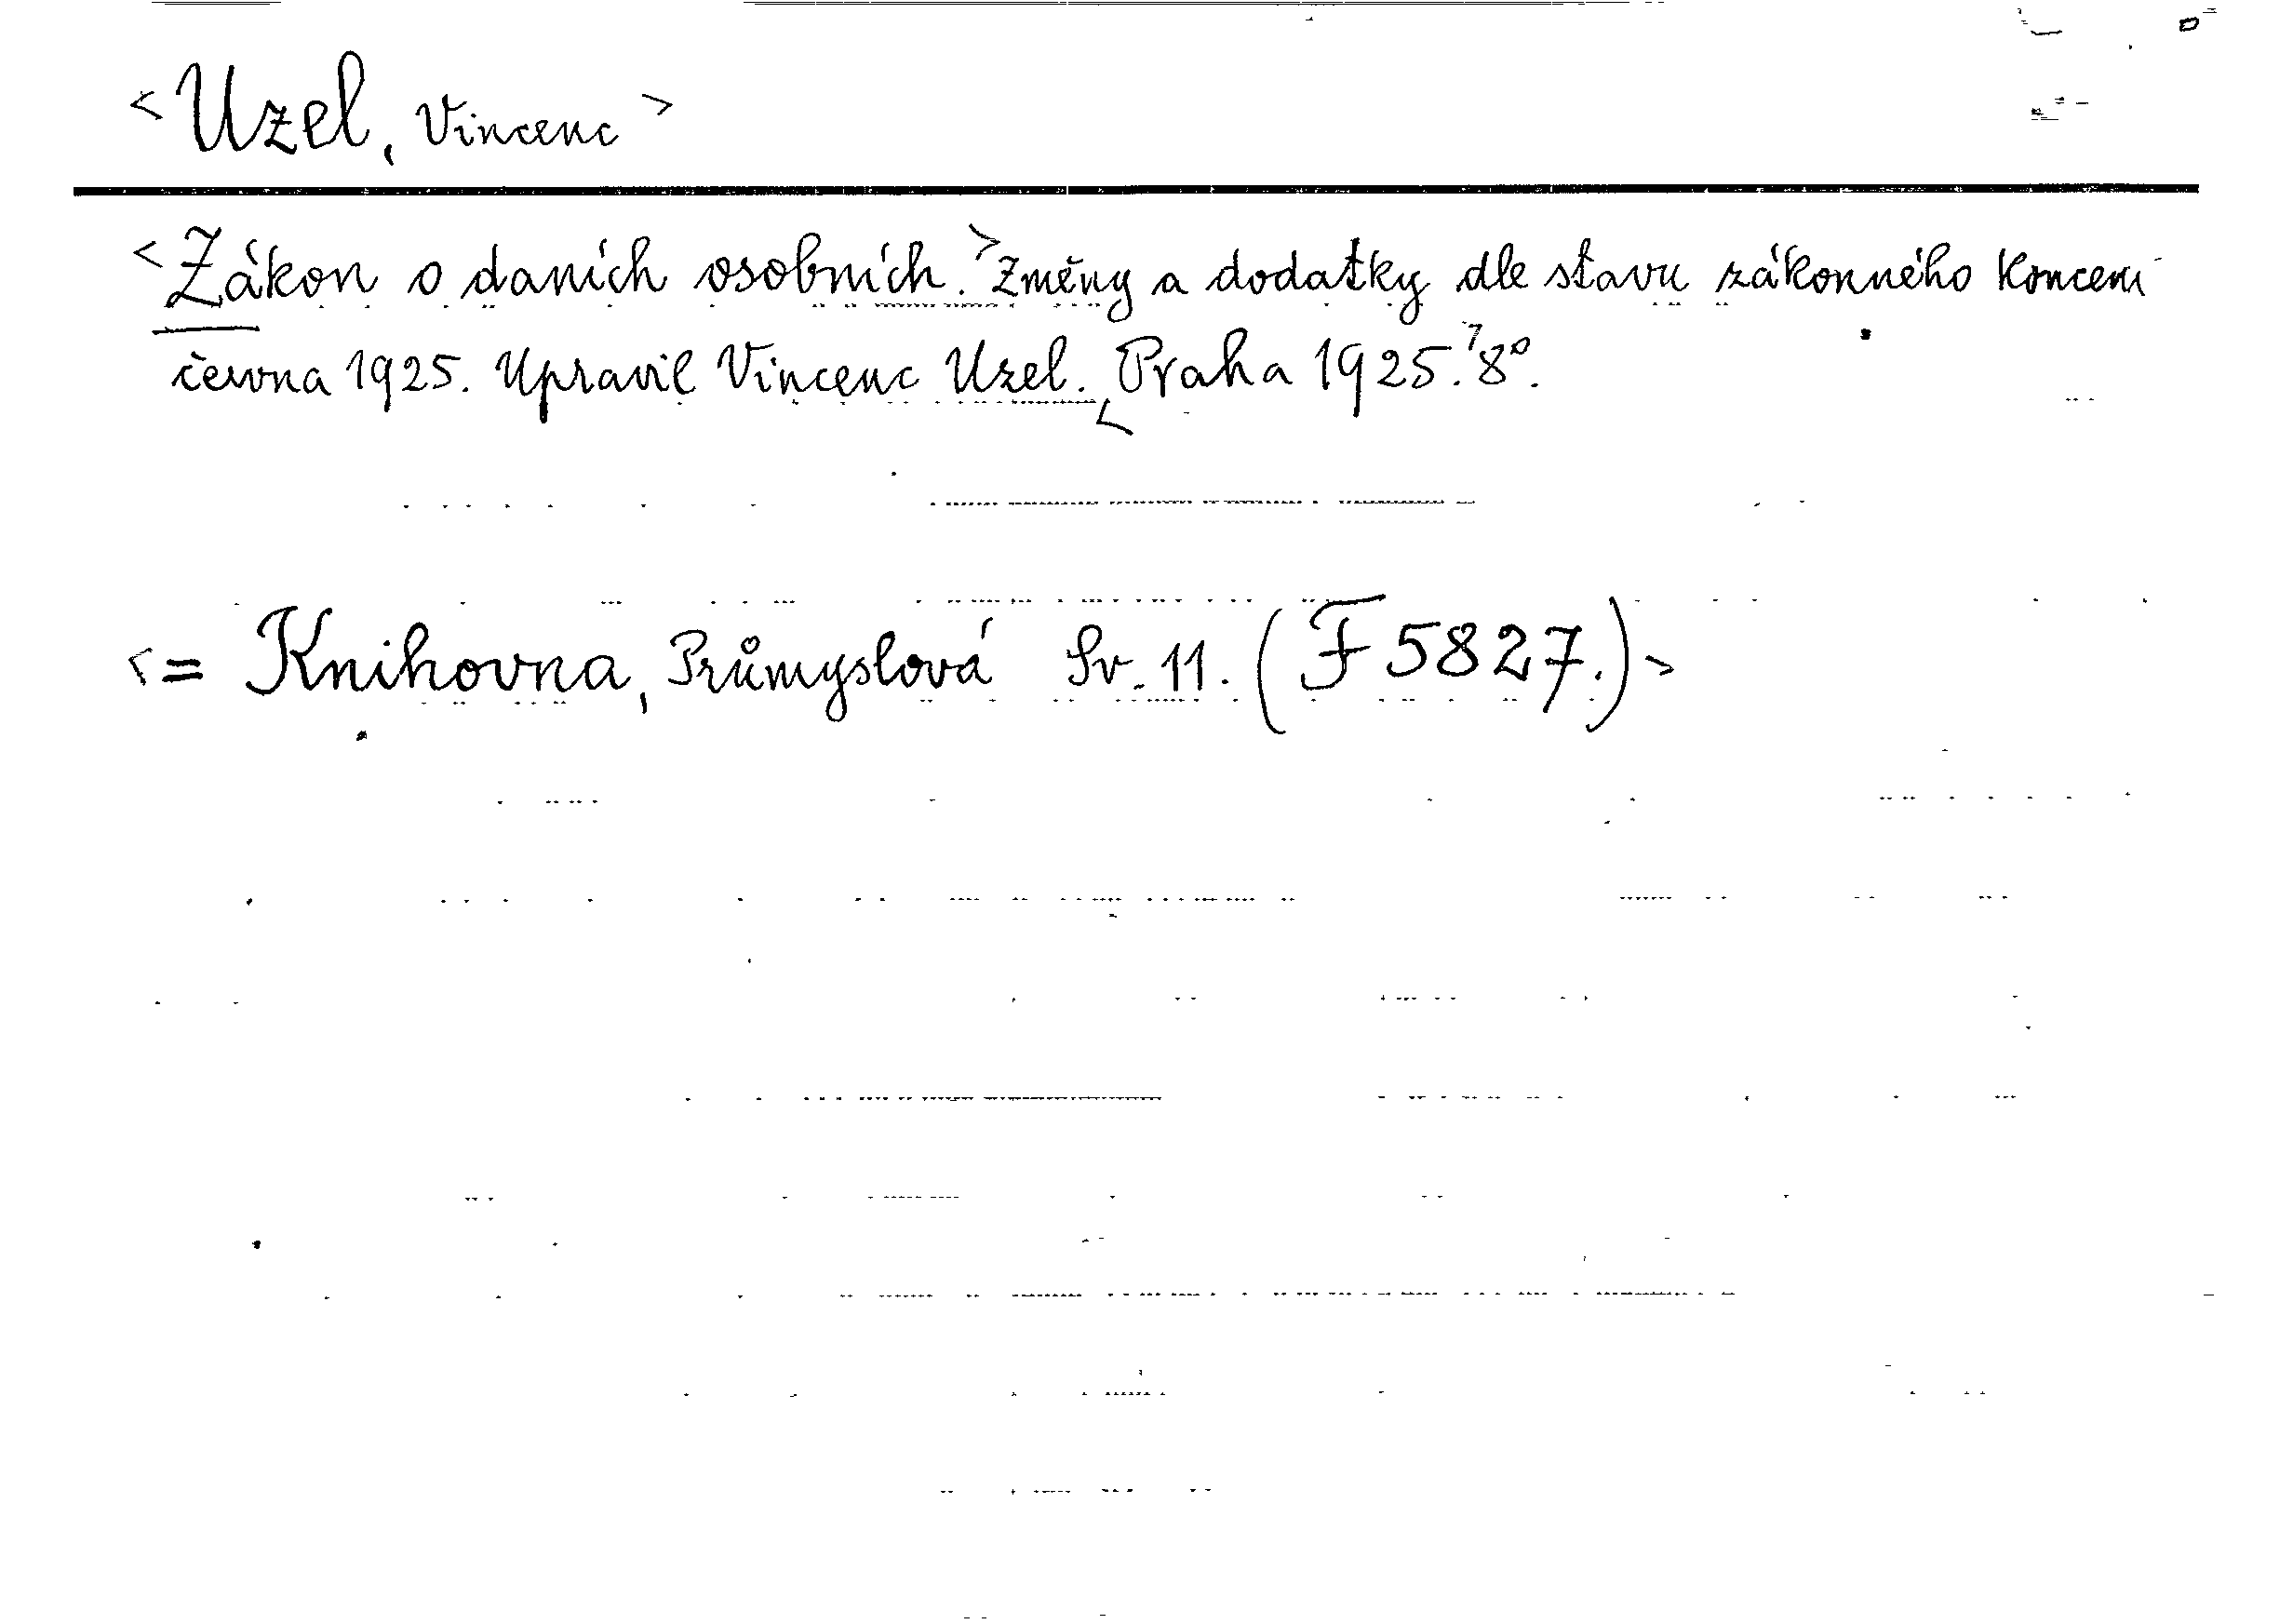 <Uzel, Vincenc>
<Zákon o daních osobních.> Změny a dodatky dle stavu zákonného koncem
června 1925. Upravil Vincenc Uzel. <Praha 1925.> 8°.
<= Knihovna, Průmyslová Sv. 11. (F 5827.)>